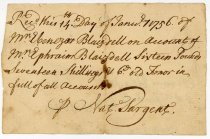 Rec.d this 14th Day of Janu.y 1756. of
Mr Ebenezer Blasdell on Account of
Mr Ephraim Blaisdell Sixteen Pounds
Seventeen Shillings & 6d old Tenor in
full of all accounts
Nat: Sargent.